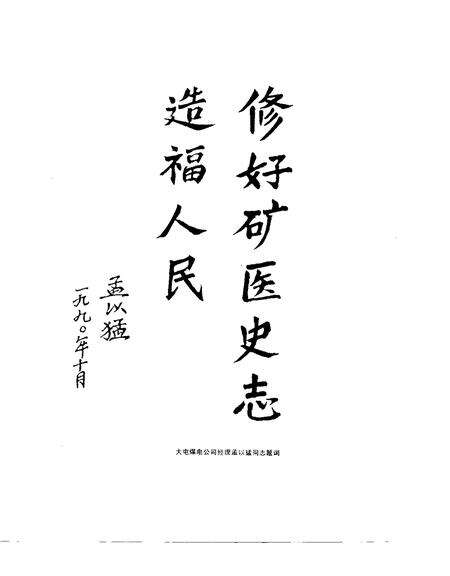 修好矿医史志
造福人民
孟以猛
一九九〇年十月
大屯煤电公司经理孟以猛同志题词